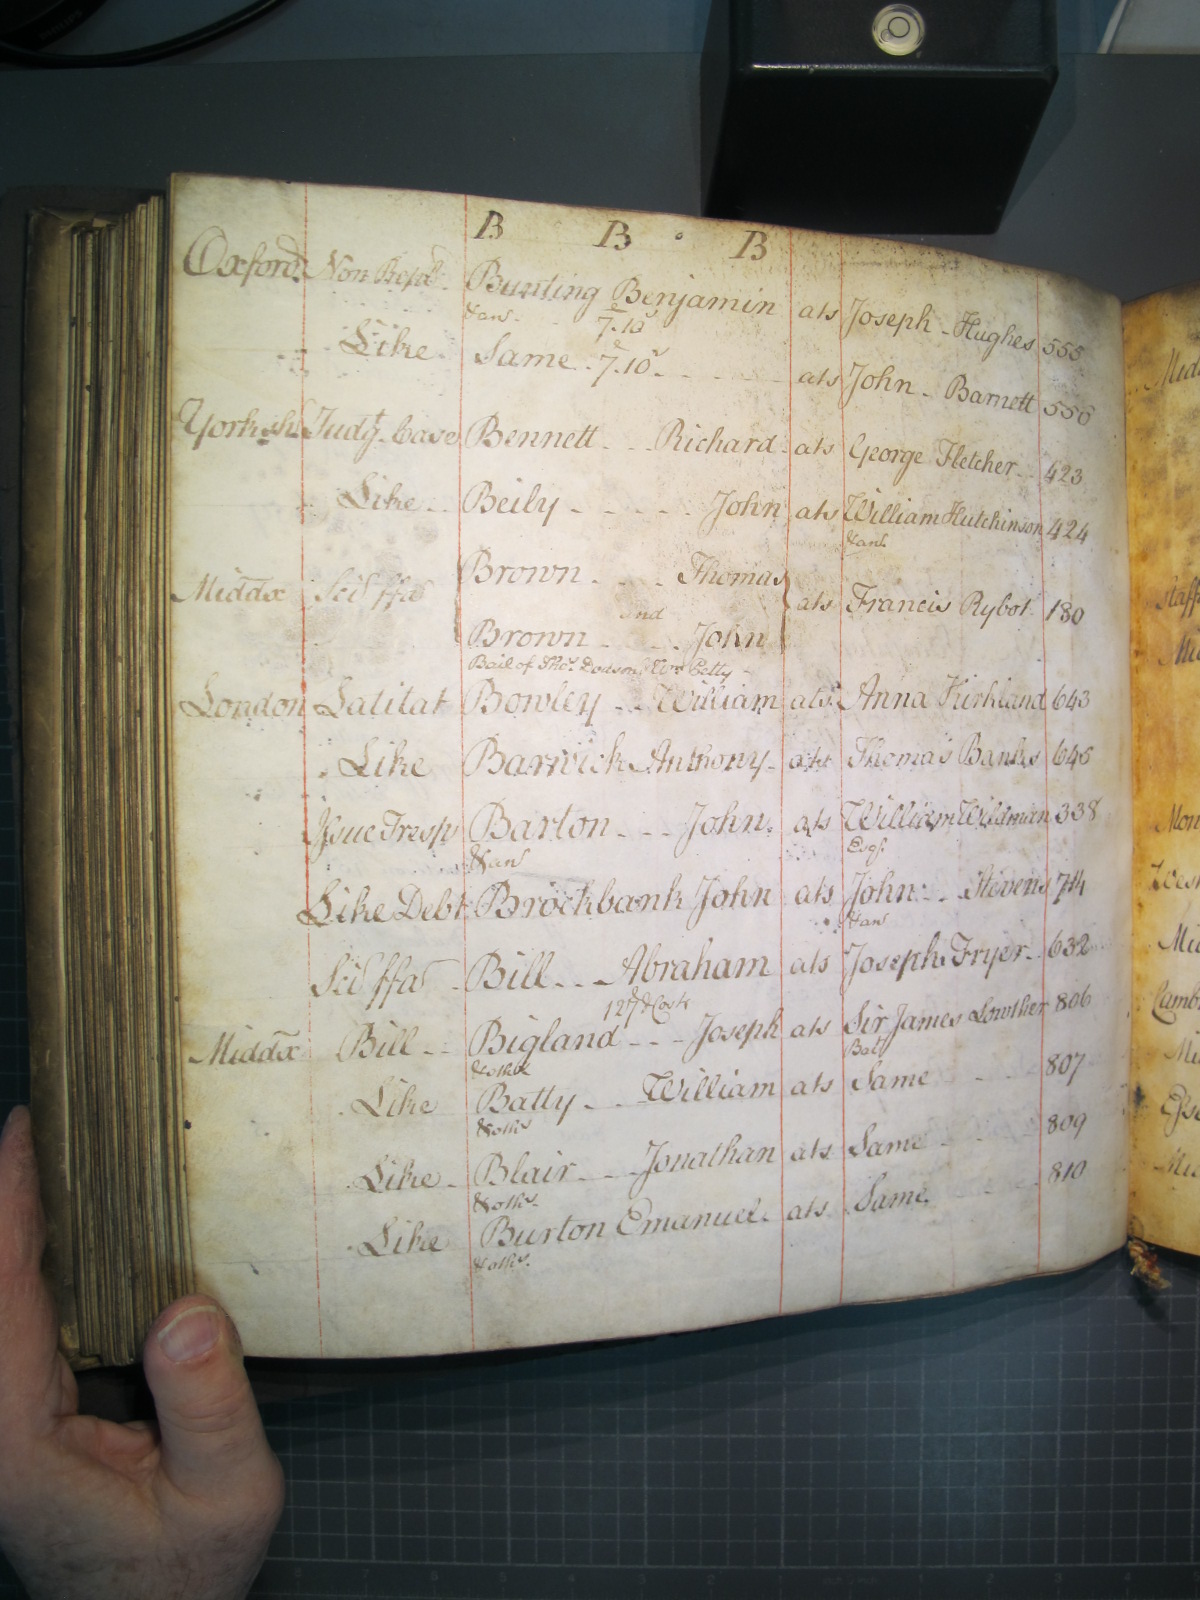 B B B
Oxford Non Bunting Benjamin ats Joseph Hughes 555
&anr 7.10
Like Same 7.10 ats John Barnett 556
Judgt. Case Bennett Richard ats George Fletcher 423
Like Beily John ats William Hutchinson 424
&anr
Brown Thomas
Middx Sci ffa and ats Francis Rybot 180
Brown John
Bail of Thos. Dodson Wm Petty
London Latitat Bowley William ats Anna Kirkland 643
Like Barwick Anthony ats Thomas Banks 645
Issue Tresp Barton John ats William Wildman 338
&anr Esqr.
Like Debt Brockbank John ats John Stevens 714
&anr
Sci ffa Bill Abraham ats Joseph Fryer 632
127 & Costs
Middx Bill Bigland Joseph ats Sir James Lowther 806
&othrs Bat
Like Batty William ats Same 807
&othrs
Like Blair Jonathan ats Same 809
&othrs
Like Burton Emanuel ats Same 810
&othrs
Midd
Staff
Mid
Mon
West
Mid
Camb
Mi
Esse
Mid